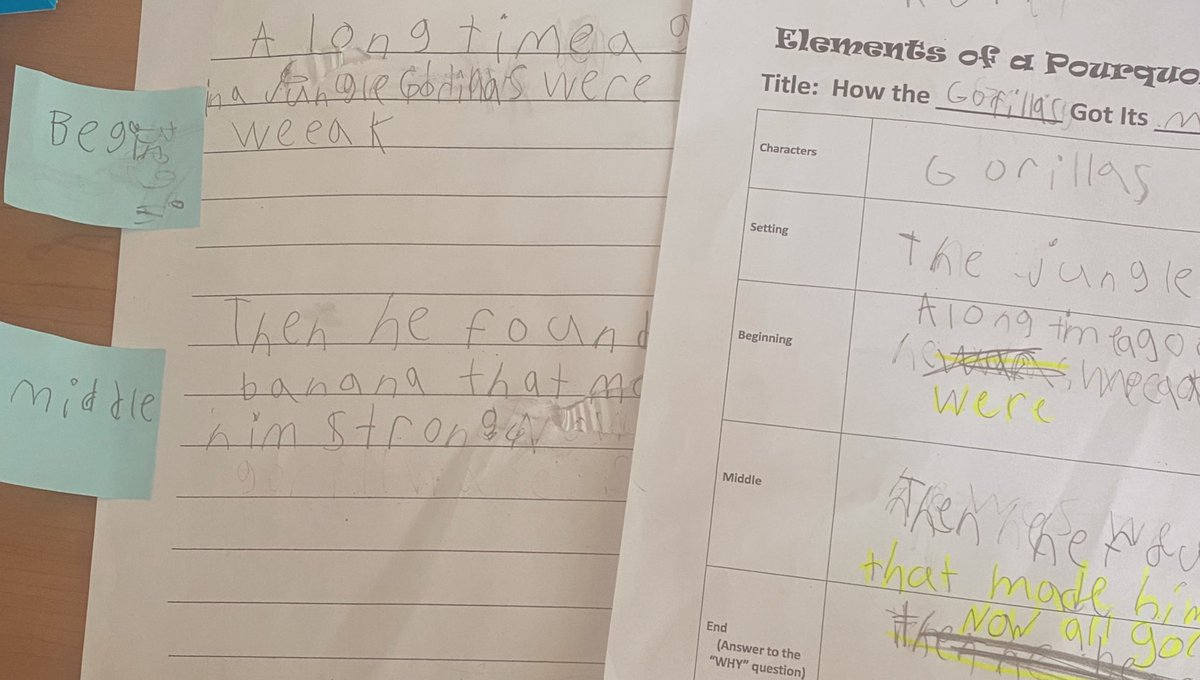 Begin
middle
A long time a g
in a Jungle Gorillas were
weeak
Then he found
banana that
him strong
Elements of a Pourquo
Title: How the Gorillas Got Its
Characters
Gorillas
Setting
the jungle
Beginning
A long time ago
were
Middle
then he
that made him
End
(Answer to the
"WHY" question)
Now all